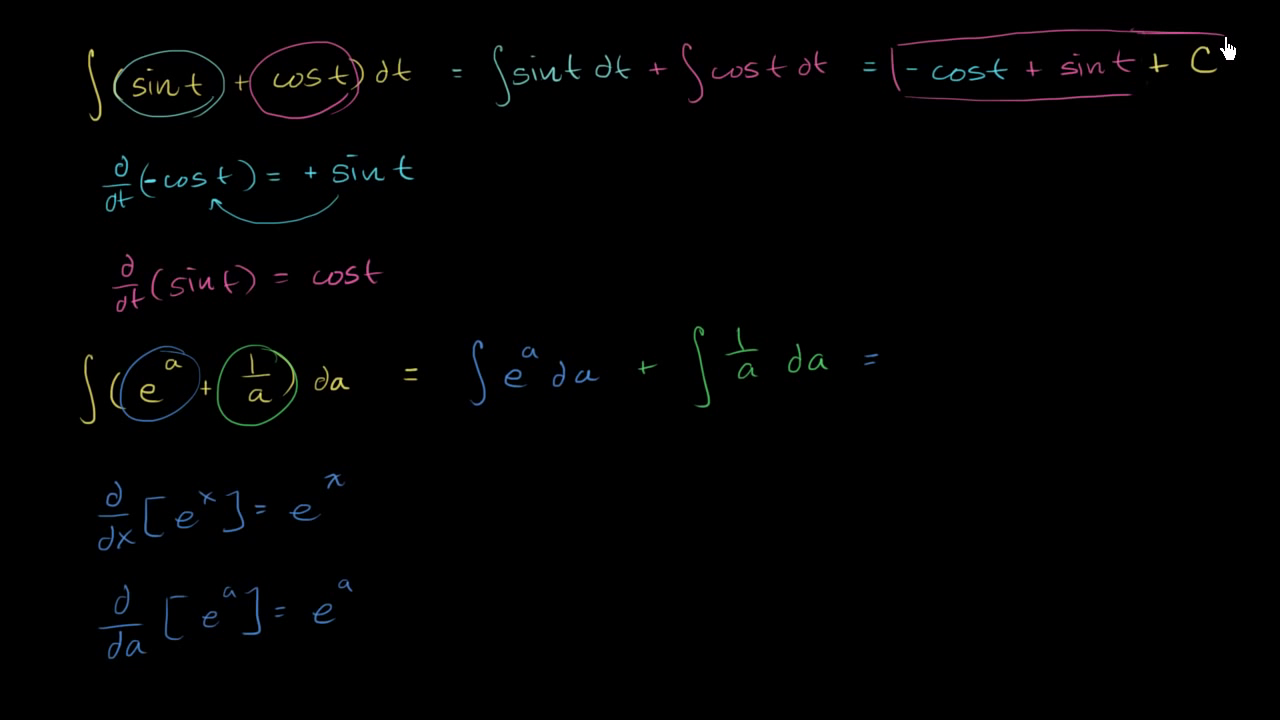 ∫(sin t + cos t) dt = ∫sin t dt + ∫cos t dt = -cos t + sin t + C
d/dt(-cos t) = + sin t
d/dt(sin t) = cos t
∫(e^a + 1/a) da = ∫e^a da + ∫1/a da =
d/dx[e^x] = e^x
d/da[e^a] = e^a